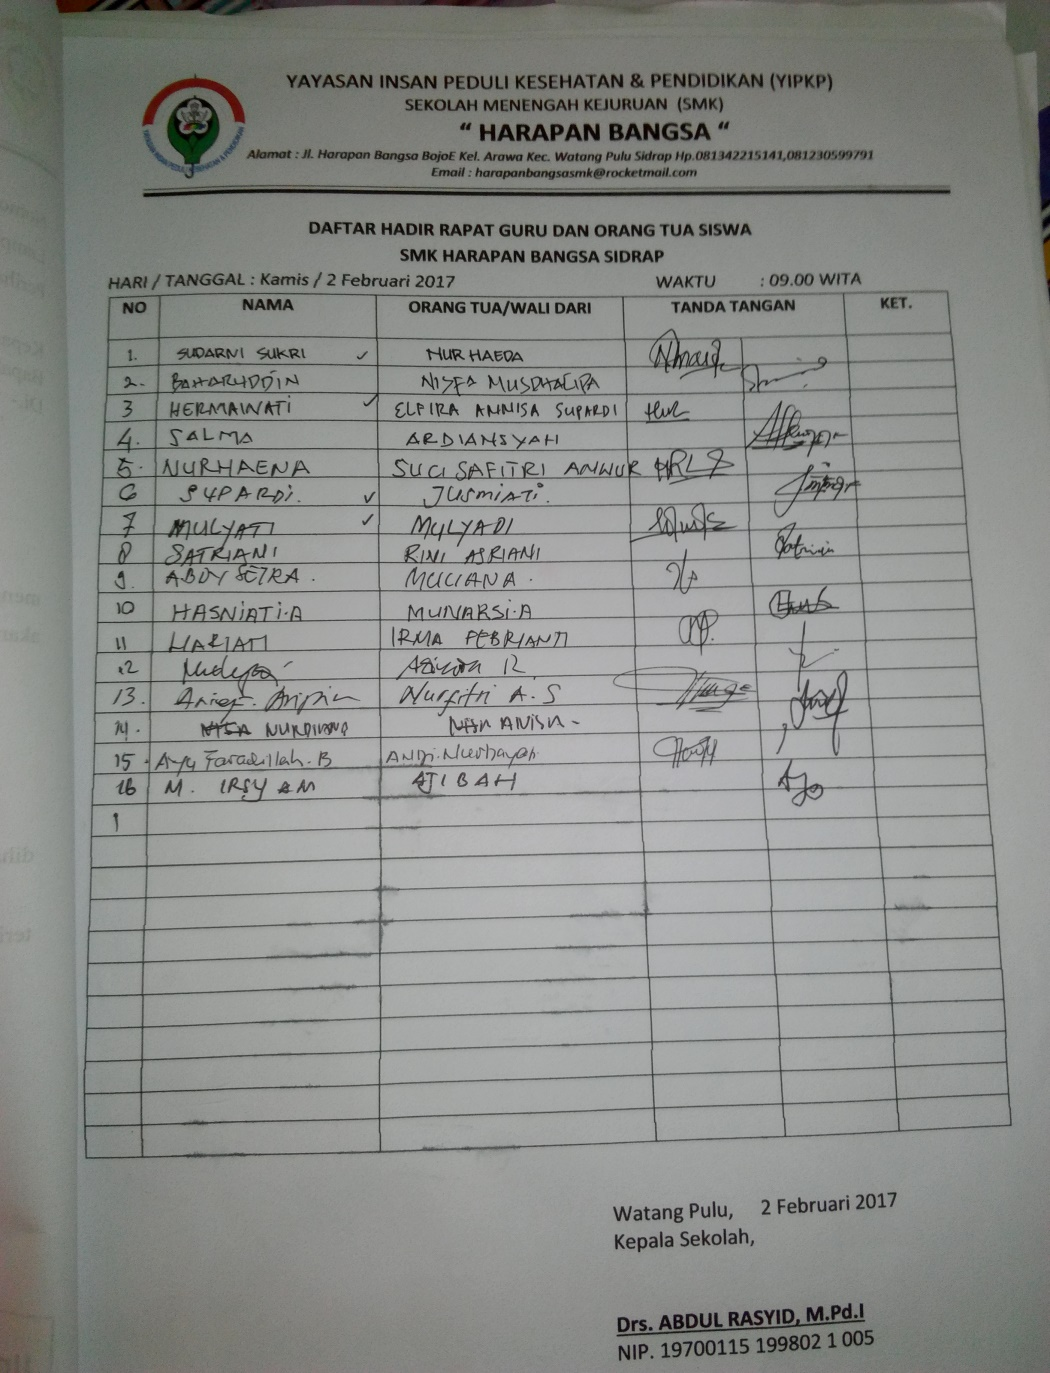 YAYASAN INSAN PEDULI KESEHATAN & PENDIDIKAN (YIPKP)
SEKOLAH MENENGAH KEJURUAN (SMK)
“ HARAPAN BANGSA “
Alamat : Jl. Harapan Bangsa BojoE Kel. Arawa Kec. Watang Pulu Sidrap Hp.081342215141,081230599791
Email : harapanbangsasmk@rocketmail.com
DAFTAR HADIR RAPAT GURU DAN ORANG TUA SISWA
SMK HARAPAN BANGSA SIDRAP
HARI / TANGGAL : Kamis / 2 Februari 2017 WAKTU : 09.00 WITA
NO NAMA ORANG TUA/WALI DARI TANDA TANGAN KET.
1. SUDARNI SUKRI ✓ NUR HAEDA
2. BAHARUDDIN NISFA
3 HERMAWATI ✓ ELPIRA ANNISA SUPARDI
4. SALMA ARDIANSYAH
5. NURHAENA SUCI SAFITRI ANWUR
6 SUPARDI. ✓ JUSMIATI.
7 MULYATI ✓ MULYADI
8 SATRIANI RINI ASRIANI
9. ABDY SETRA. MULIANA.
10 HASNIATI.A MUNARSI.A
11 HARIATI IRMA FEBRIANTI
12
13. Nurfitri A. S
14. NURDIANA ANISA
15. Ayu Faradillah. B ANDI. Nurhayati
16 M. IRSYAM ATIBAH
1
Watang Pulu, 2 Februari 2017
Kepala Sekolah,
Drs. ABDUL RASYID, M.Pd.I
NIP. 19700115 199802 1 005